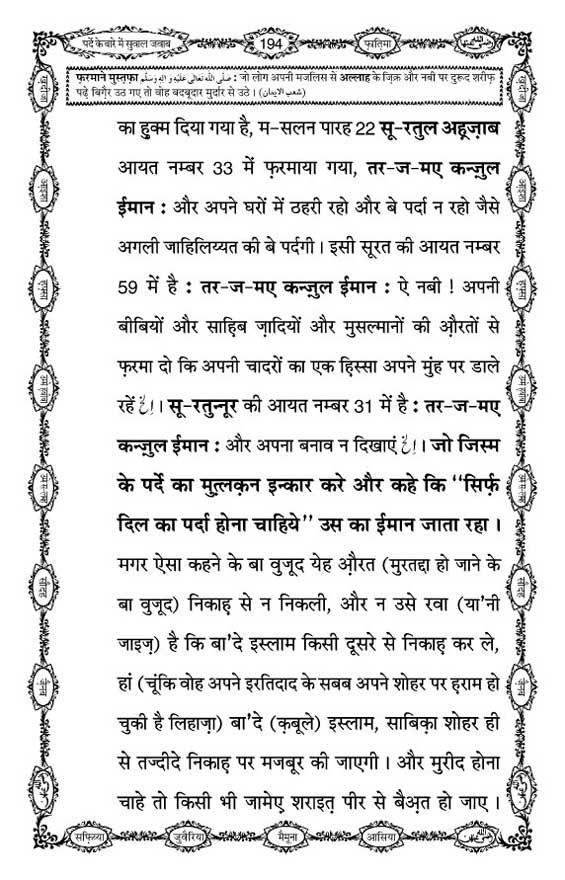 पर्दे के बारे में सुवाल जवाब
194
फ़ातिमा
फ़रमाने मुस्तफ़ा صَلَّى اللهُ تَعَالٰى عَلَيْهِ وَاٰلِهٖ وَسَلَّم : जो लोग अपनी मजलिस से अल्लाह के ज़िक्र और नबी पर दुरूद शरीफ़
पढ़े बिग़ैर उठ गए तो वोह बदबूदार मुर्दार से उठे । (شعب الایمان)
का हुक्म दिया गया है, म-सलन पारह 22 सू-रतुल अह़्ज़ाब
आयत नम्बर 33 में फ़रमाया गया, तर-ज-मए कन्ज़ुल
ईमान : और अपने घरों में ठहरी रहो और बे पर्दा न रहो जैसे
अगली जाहिलिय्यत की बे पर्दगी । इसी सूरत की आयत नम्बर
59 में है : तर-ज-मए कन्ज़ुल ईमान : ऐ नबी ! अपनी
बीबियों और साहिब ज़ादियों और मुसल्मानों की औ़रतों से
फ़रमा दो कि अपनी चादरों का एक हिस्सा अपने मुंह पर डाले
रहें الخ । सू-रतुन्नूर की आयत नम्बर 31 में है : तर-ज-मए
कन्ज़ुल ईमान : और अपना बनाव न दिखाएं الخ । जो जिस्म
के पर्दे का मुत़्लक़न इन्कार करे और कहे कि “सिर्फ़
दिल का पर्दा होना चाहिये” उस का ईमान जाता रहा ।
मगर ऐसा कहने के बा वुजूद येह औ़रत (मुरतद्दा हो जाने के
बा वुजूद) निकाह़ से न निकली, और न उसे रवा (या'नी
जाइज़) है कि बा'दे इस्लाम किसी दूसरे से निकाह़ कर ले,
हां (चूंकि वोह अपने इरतिदाद के सबब अपने शोहर पर ह़राम हो
चुकी है लिहाज़ा) बा'दे (क़बूले) इस्लाम, साबिक़ा शोहर ही
से तज्दीदे निकाह़ पर मजबूर की जाएगी । और मुरीद होना
चाहे तो किसी भी जामेए़ शराइत़ पीर से बैअ़त हो जाए ।
सफ़िय्या
जुवैरिया
मैमूना
आसिया